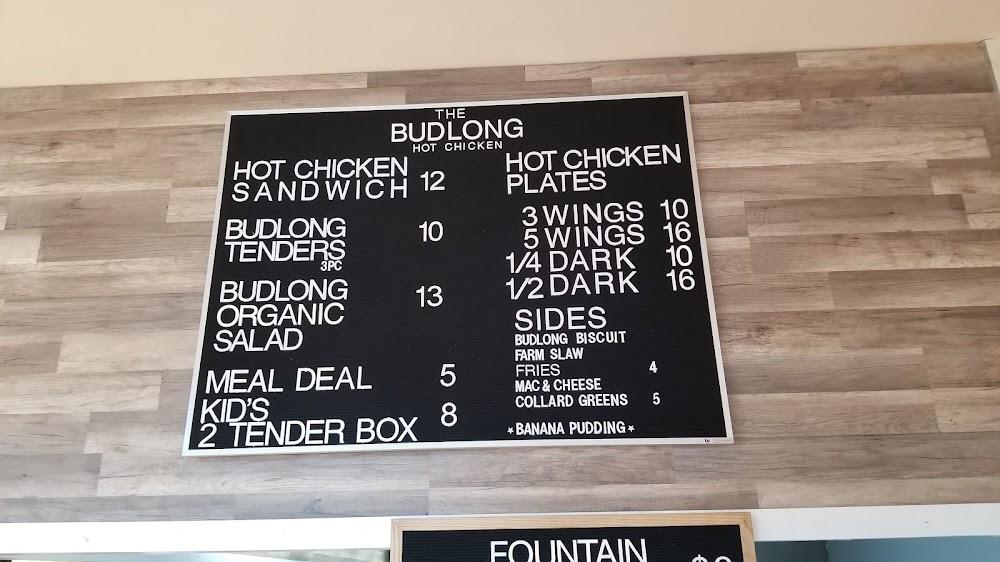 THE
BUDLONG
HOT CHICKEN
HOT CHICKEN
SANDWICH 12
BUDLONG
TENDERS 10
3PC
BUDLONG
ORGANIC 13
SALAD
MEAL DEAL 5
KID'S
2 TENDER BOX 8
HOT CHICKEN
PLATES
3 WINGS 10
5 WINGS 16
1/4 DARK 10
1/2 DARK 16
SIDES
BUDLONG BISCUIT
FARM SLAW
FRIES 4
MAC & CHEESE
COLLARD GREENS 5
*BANANA PUDDING*
FOUNTAIN